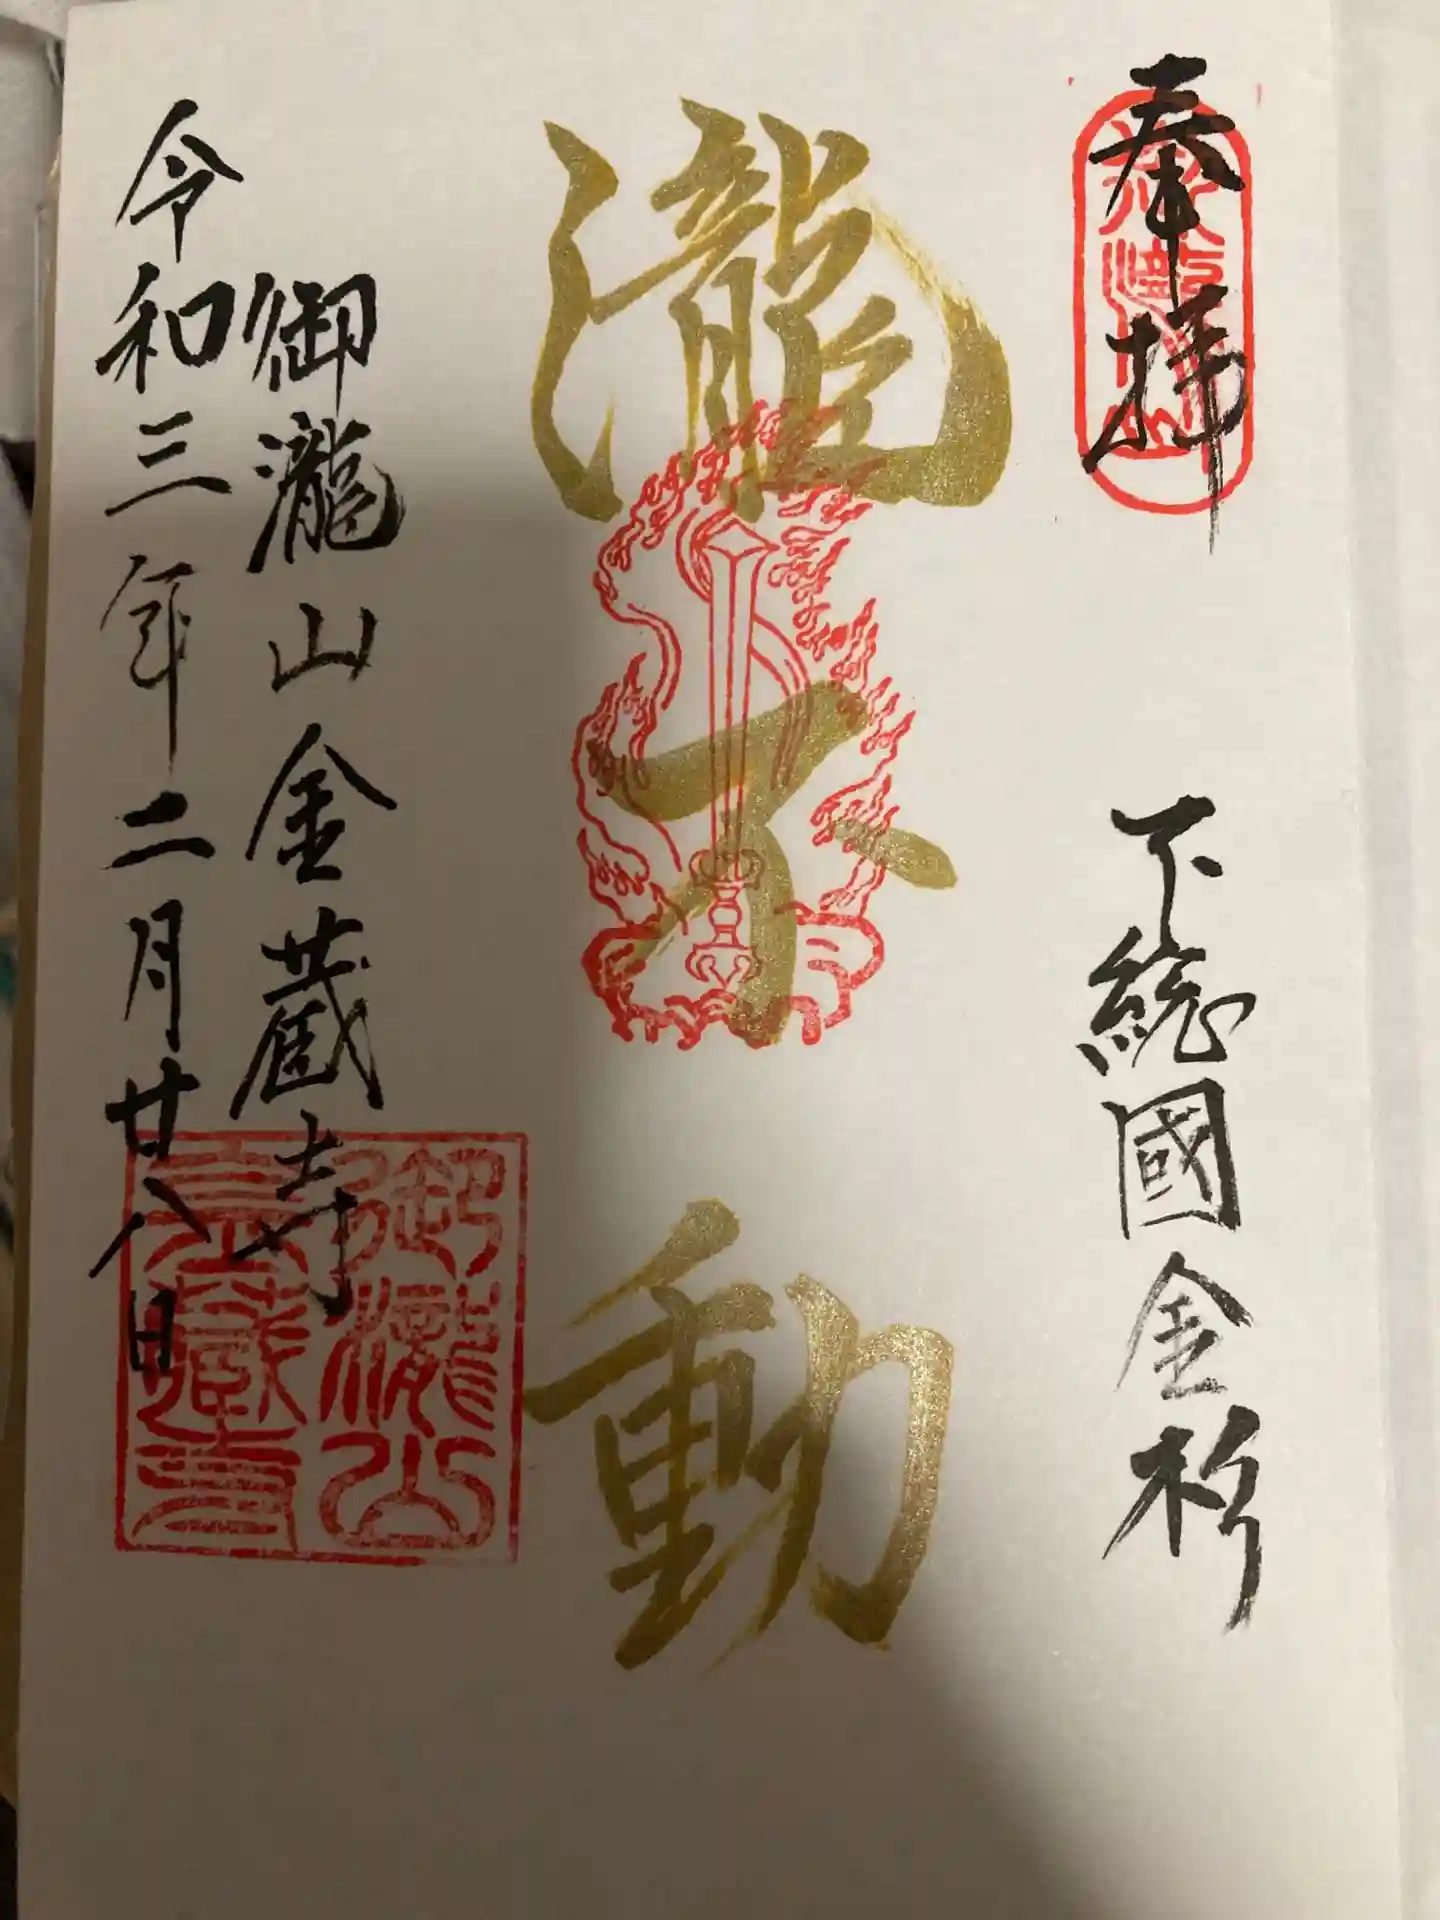 奉拝
下総國金杉
瀧不動
御瀧山金蔵寺
令和三年二月廿八日
御瀧山
金藏寺